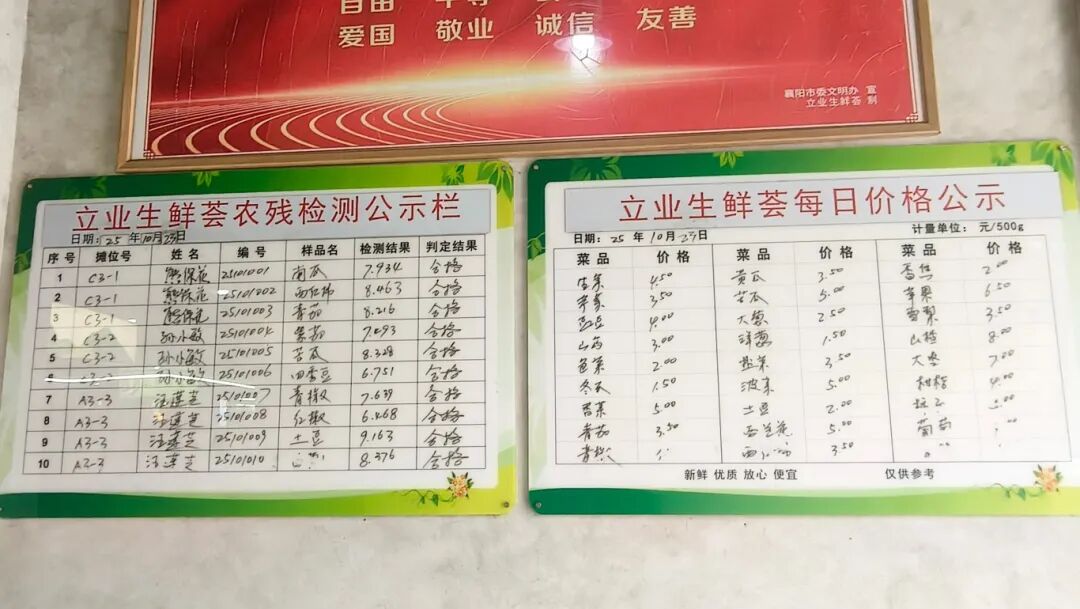 爱国 敬业 诚信 友善
襄阳市委文明办 宣
立业生鲜荟 制
立业生鲜荟农残检测公示栏
日期: 25 年10月23日
序号 摊位号 姓名 编号 样品名 检测结果 判定结果
1 C3-1 熊保花 25101001 南瓜 7.934 合格
2 C3-1 熊保花 25101002 西红柿 8.463 合格
3 C3-1 熊保花 25101003 青茄 8.216 合格
4 C3-2 孙小敏 25101004 紫茄 7.493 合格
5 C3-2 孙小敏 25101005 苦瓜 8.328 合格
6 C3-2 孙小敏 25101006 四季豆 6.751 合格
7 A3-3 汪莲芝 25101007 青椒 7.639 合格
8 A3-3 汪莲芝 25101008 红椒 6.468 合格
9 A3-3 汪莲芝 25101009 土豆 9.163 合格
10 A3-3 汪莲芝 25101010 8.376 合格
立业生鲜荟每日价格公示
日期: 25 年 10月23日 计量单位: 元/500g
菜品 价格 菜品 价格 菜品 价格
生菜 4.50 黄瓜 3.50 香蕉 2.00
芹菜 3.50 苦瓜 5.00 苹果 6.50
豇豆 4.00 大葱 2.50 雪梨 3.50
山药 3.00 洋葱 1.50 山楂 8.00
包菜 2.00 3.50 大枣 7.00
冬瓜 1.50 菠菜 5.00 柑橘 4.00
5.00 土豆 2.00
青茄 3.50 西兰花 5.00 葡萄
青椒 3.50
新鲜 优质 放心 便宜 仅供参考